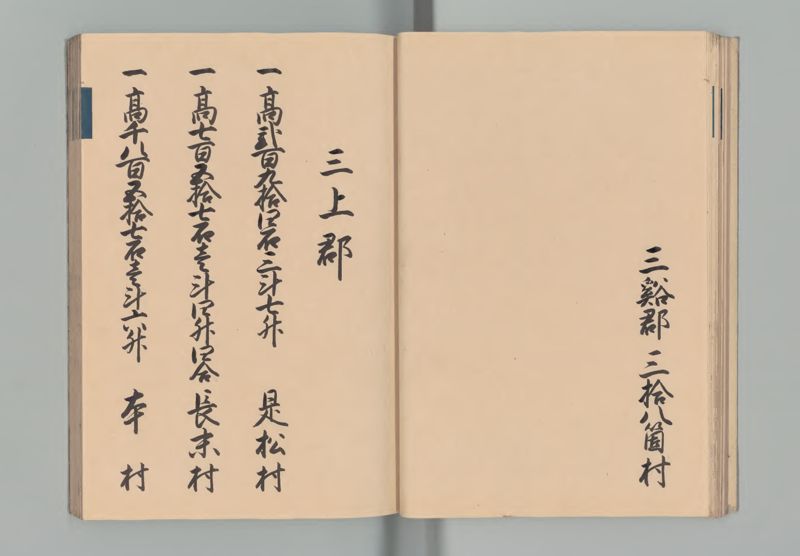 三谿郡三拾八箇村
三上郡
一高弐百九拾四石三斗七升 是松村
一高七百五拾七石壱斗四升四合 長末村
一高千八百五拾七石壱斗六升 本村